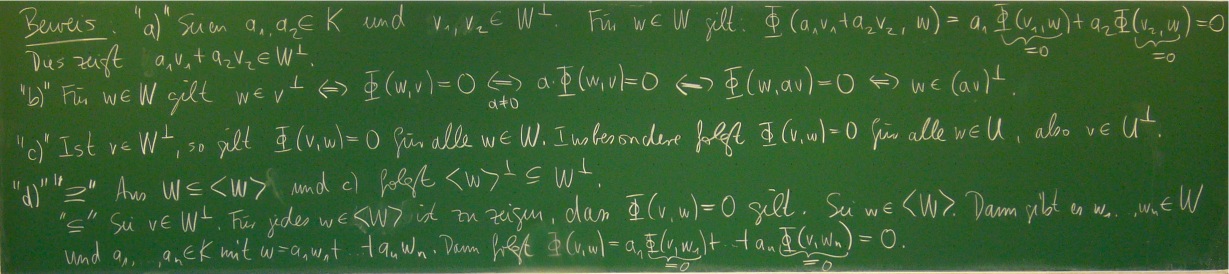 Beweis. "a)" Seien a₁, a₂ ∈ K und v₁, v₂ ∈ W^⊥. Für w ∈ W gilt: Φ(a₁v₁+a₂v₂, w) = a₁ Φ(v₁,w) + a₂ Φ(v₂,w) = 0
=0 =0
Dies zeigt a₁v₁+a₂v₂ ∈ W^⊥.
"b)" Für w ∈ W gilt w ∈ v^⊥ ⟺ Φ(w,v) = 0 ⟺ a·Φ(w,v) = 0 ⟺ Φ(w,av) = 0 ⟺ w ∈ (av)^⊥.
a≠0
"c)" Ist v ∈ W^⊥, so gilt Φ(v,w) = 0 für alle w ∈ W. Insbesondere folgt Φ(v,w) = 0 für alle w ∈ U, also v ∈ U^⊥.
"d)" "⊇" Aus W ⊆ <W> und c) folgt <W>^⊥ ⊆ W^⊥.
"⊆" Sei v ∈ W^⊥. Für jedes w ∈ <W> ist zu zeigen, dass Φ(v,w) = 0 gilt. Sei w ∈ <W>. Dann gibt es w₁, ..., wₙ ∈ W
und a₁, ..., aₙ ∈ K mit w = a₁w₁ + ... + aₙwₙ. Dann folgt Φ(v,w) = a₁Φ(v,w₁) + ... + aₙΦ(v,wₙ) = 0.
=0 =0